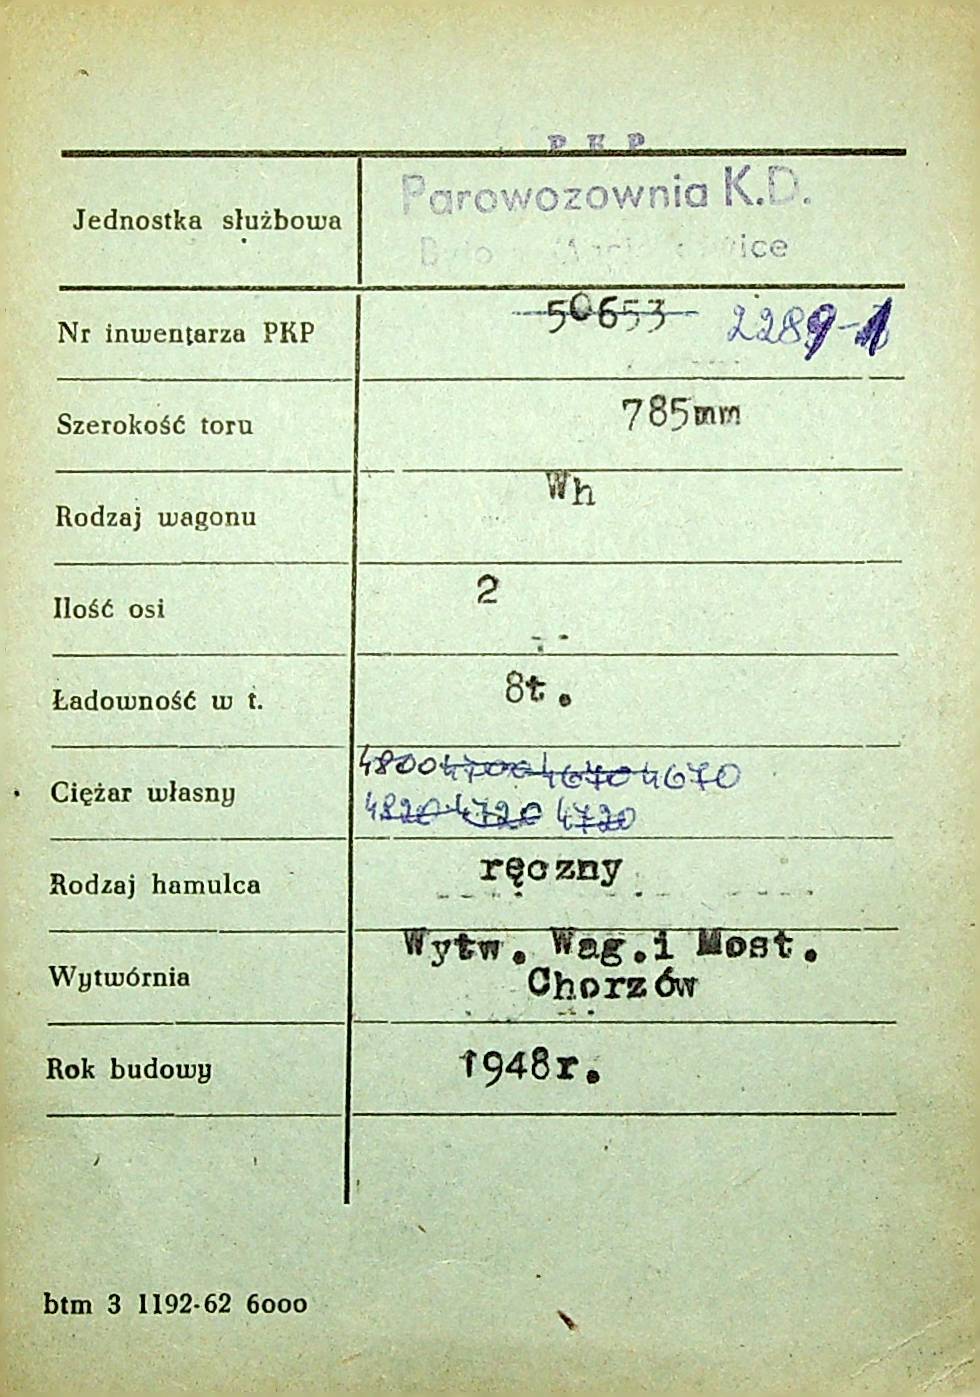 P K P
Jednostka służbowa Parowozownia K.D.
Nr inwentarza PKP 50653 2289-1
Szerokość toru 785mm
Rodzaj wagonu Wh
Ilość osi 2
Ładowność w t. 8t.
Ciężar własny 4800 4700 4670 4670
4820 4720 4720
Rodzaj hamulca ręczny
Wytwórnia Wytw. Wag. i Most.
Chorzów
Rok budowy 1948r.
btm 3 1192-62 6000